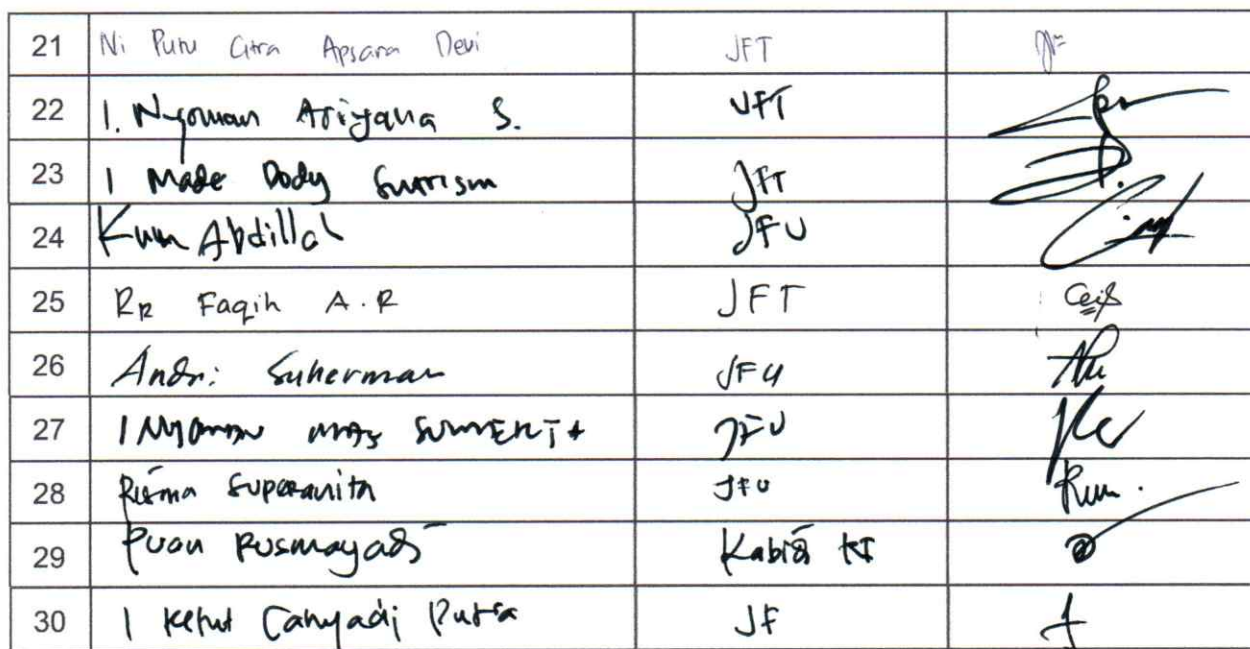 21 Ni Putu Citra Apsara Devi JFT
22 I. Nyoman Ariyana S. JFT
23 I Made Dody JFT
24 Abdillah JFU
25 RR Faqih A.R JFT
26 Andri Suherman JFU
27 I Nyoman Mas JFU
28 Risma Superanita JFU
29 Rusmayadi Kabid KI
30 I Ketut Cahyadi Putra JF